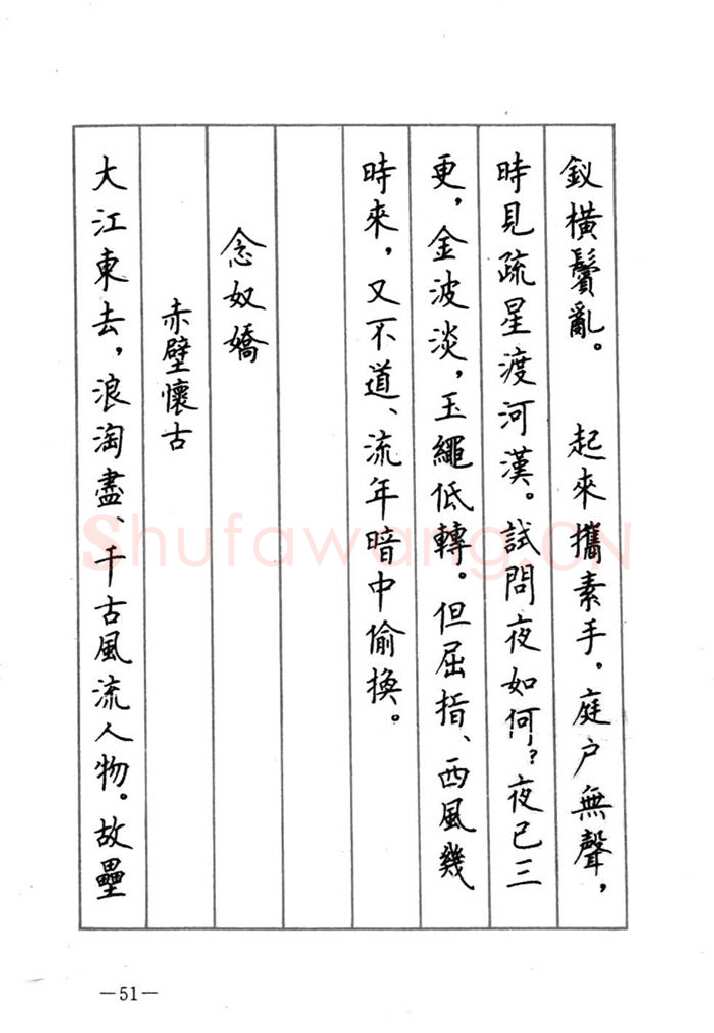 釵橫鬢亂。　起來攜素手，庭户無聲，
時見疏星渡河漢。試問夜如何？夜已三
更，金波淡，玉繩低轉。但屈指、西風幾
時來，又不道、流年暗中偷換。
念奴嬌
赤壁懷古
大江東去，浪淘盡、千古風流人物。故壘
—51—
Shufawang.CN